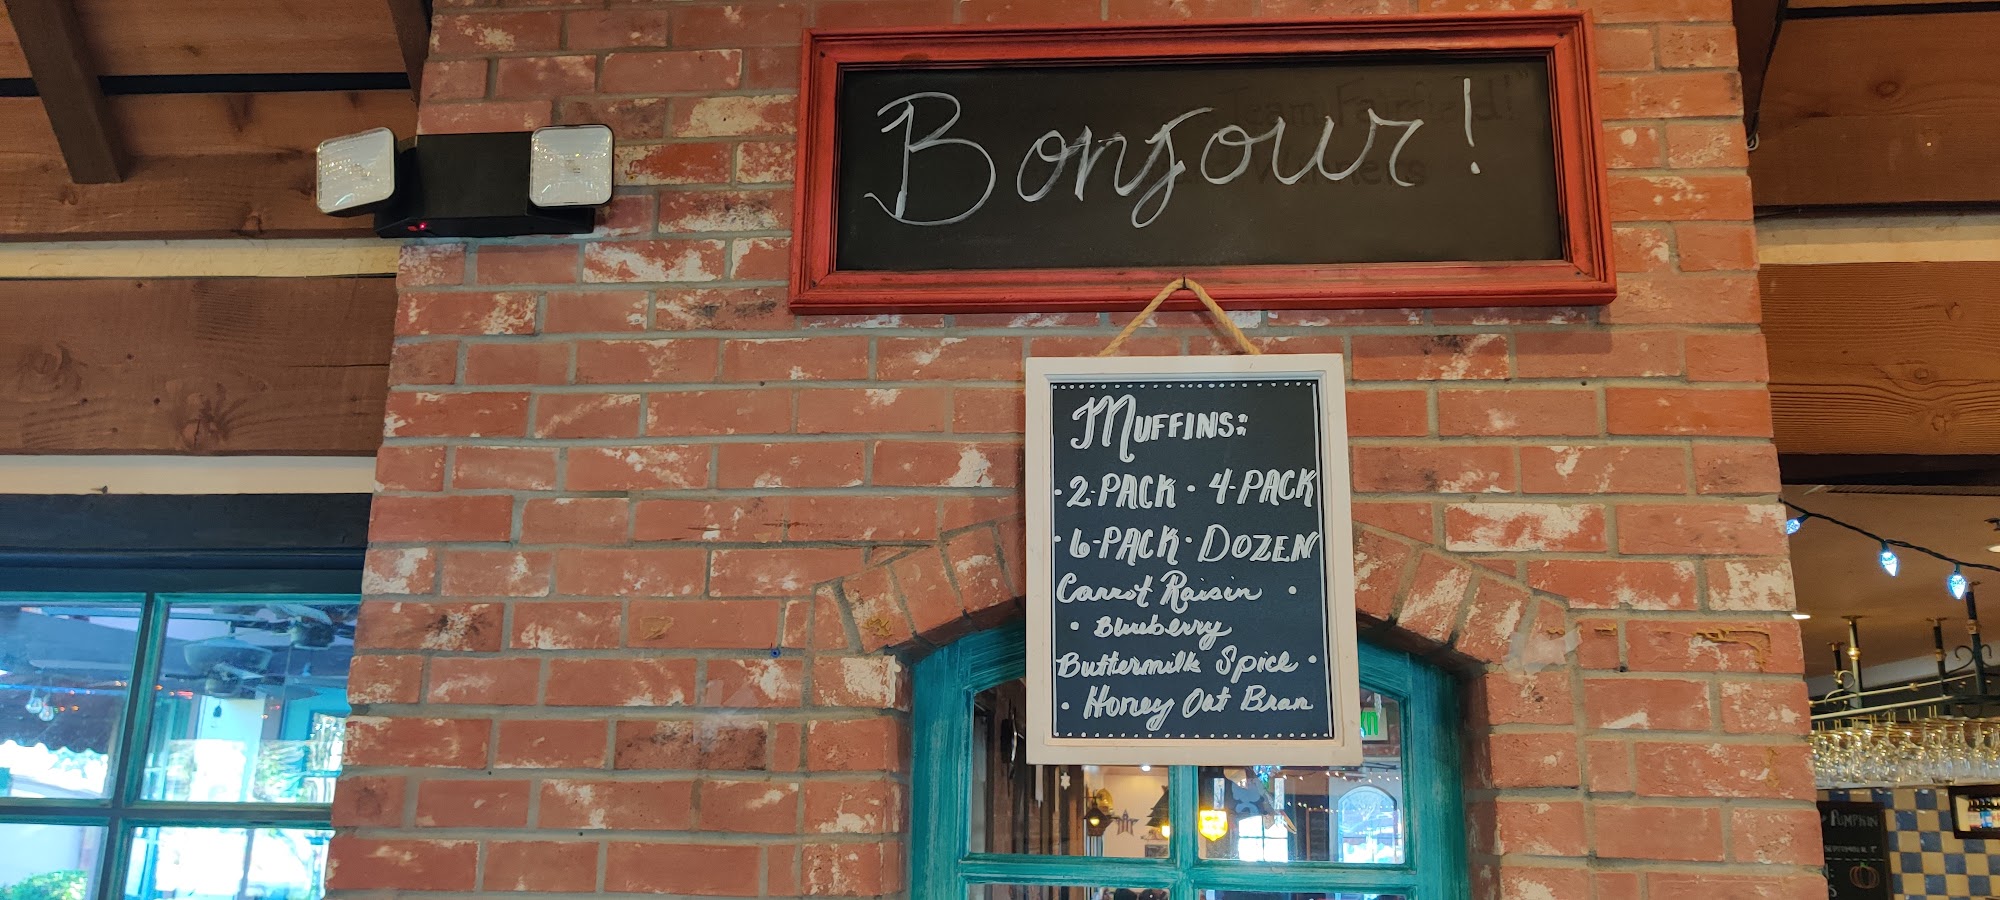 Bonjour!
Team Fairfield!"
Winners
MUFFINS:
• 2-PACK • 4-PACK
• 6-PACK • DOZEN
Carrot Raisin •
• Blueberry
Buttermilk Spice •
• Honey Oat Bran
PUMPKIN
SEPTEMBER